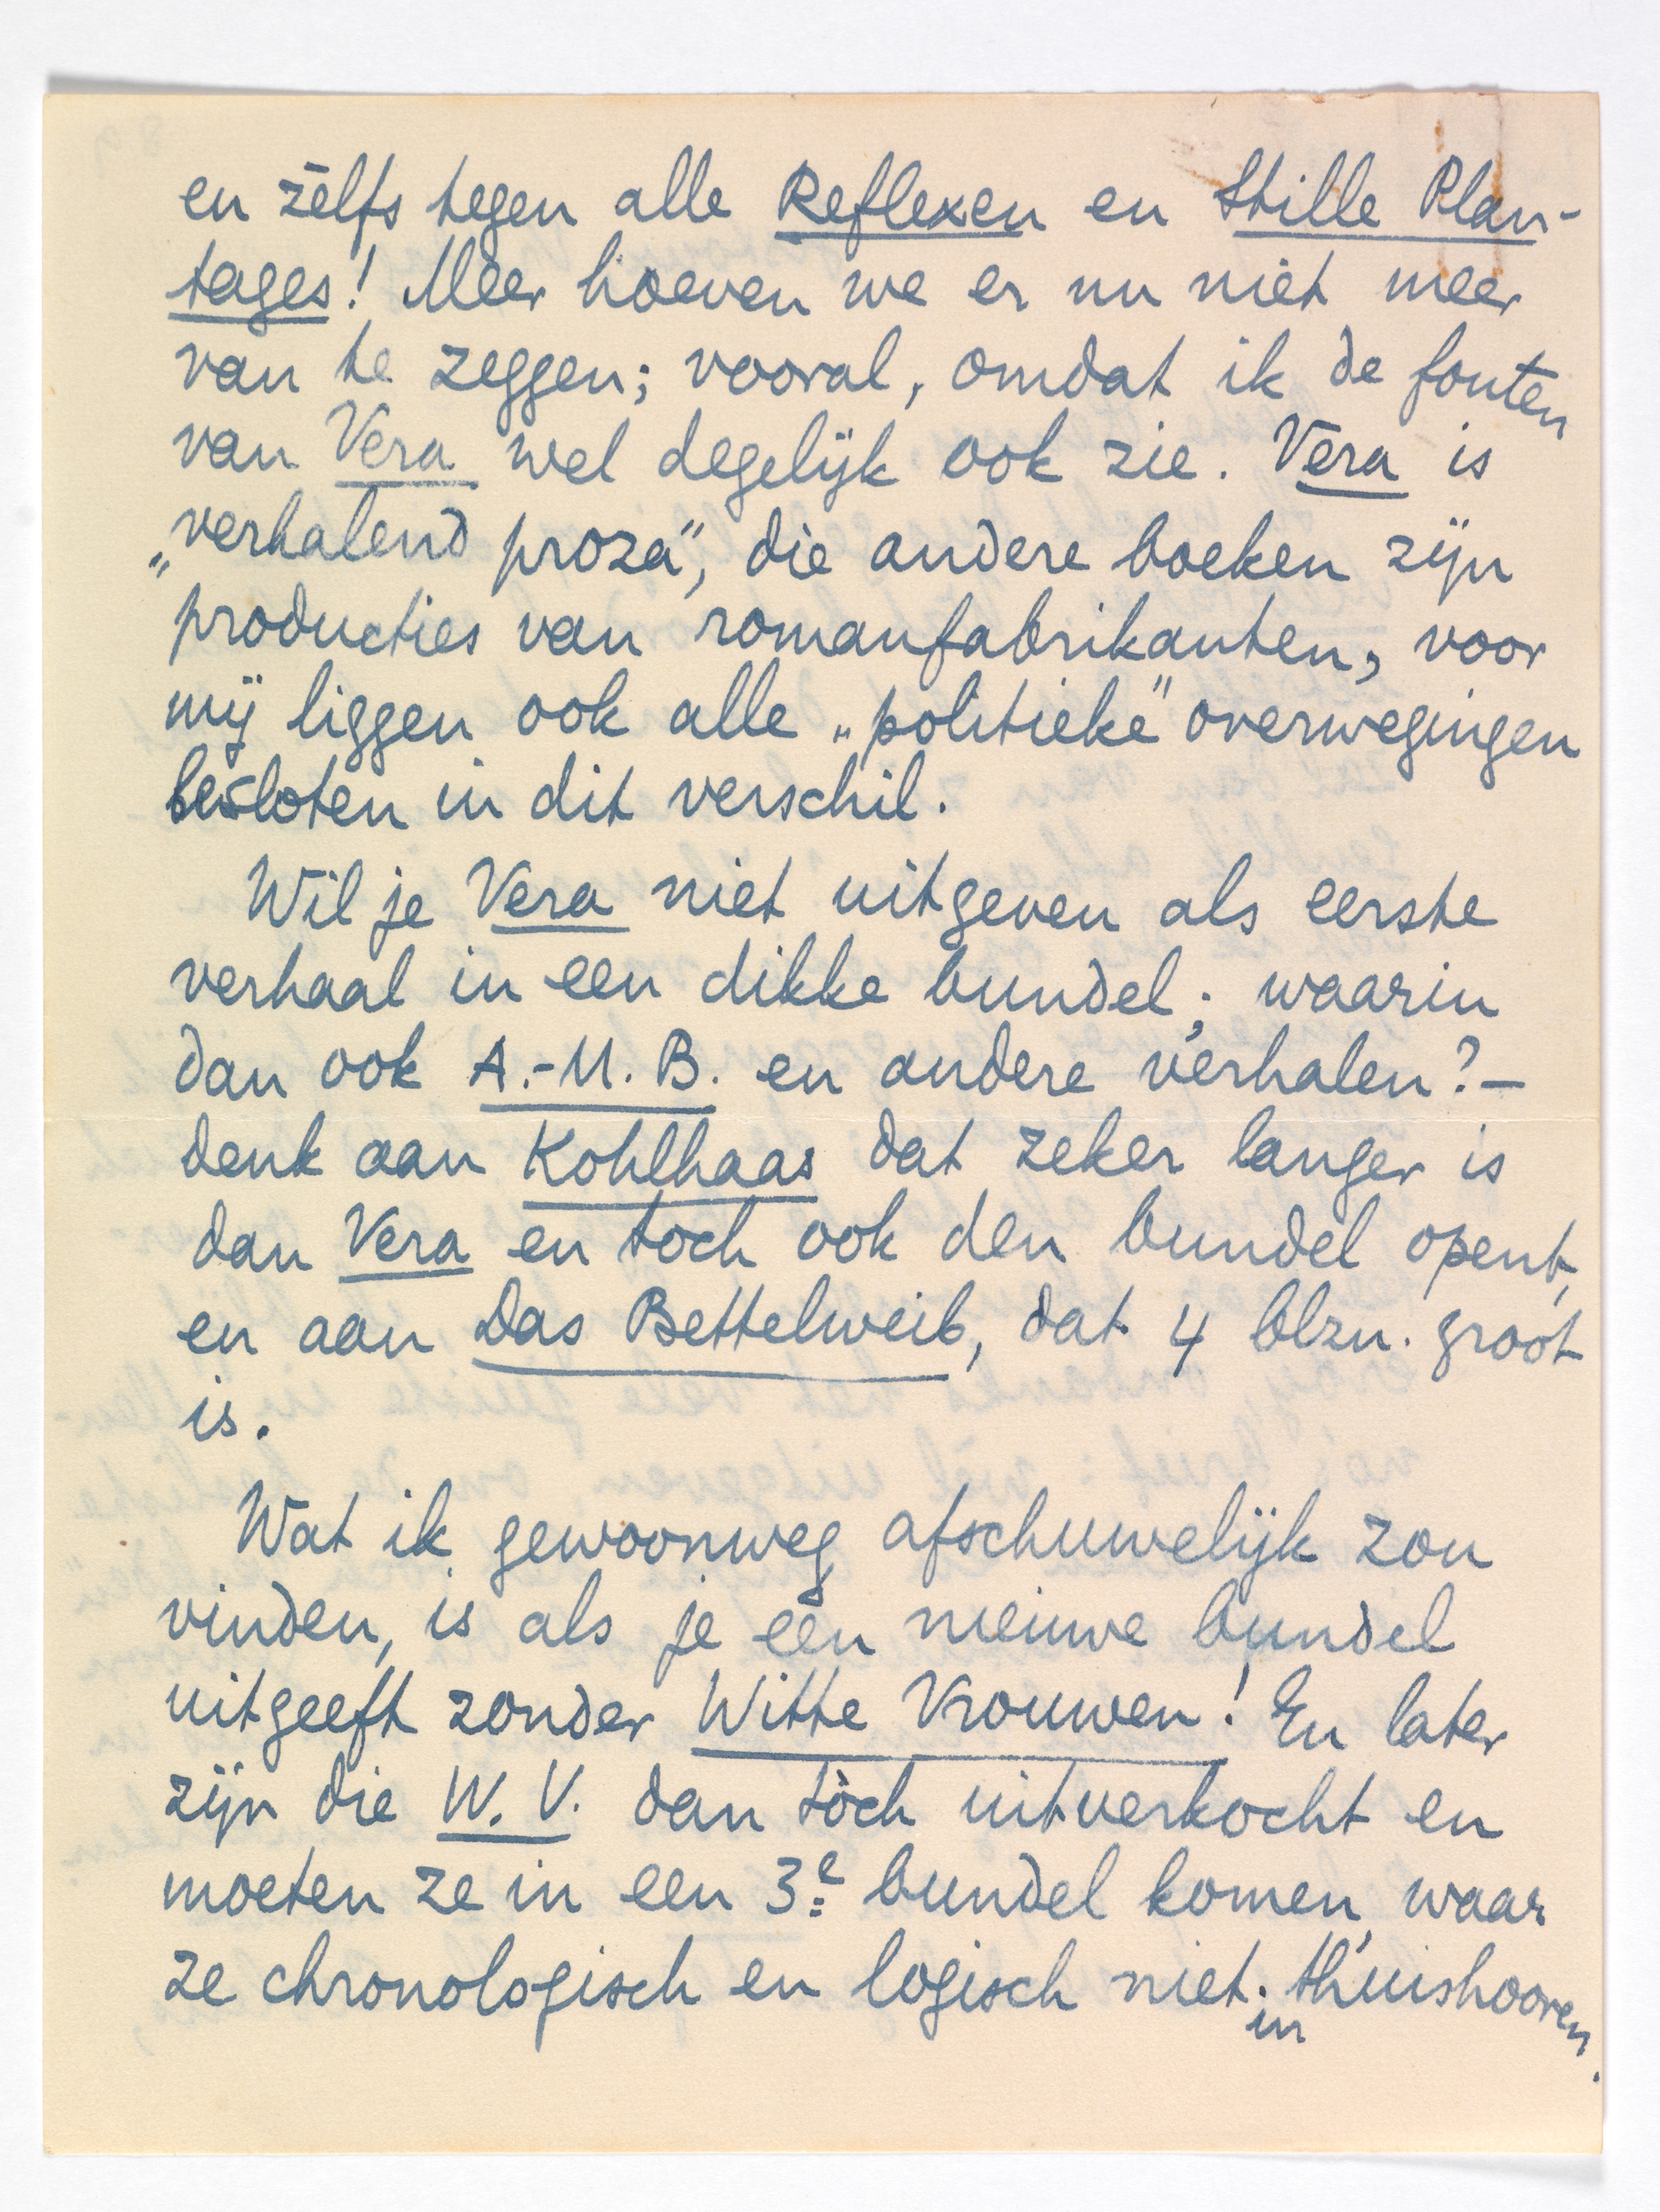 en zelfs tegen alle Reflexen en Stille Plan-
tages! Meer hoeven we er nu niet meer
van te zeggen; vooral, omdat ik de fouten
van Vera wel degelijk ook zie. Vera is
„verhalend proza”, die andere boeken zijn
producties van romanfabrikanten, voor
mij liggen ook alle „politieke” overwegingen
besloten in dit verschil.
Wil je Vera niet uitgeven als eerste
verhaal in een dikke bundel, waarin
dan ook A.-M. B. en andere verhalen? –
denk aan Kohlhaas dat zeker langer is
dan Vera en toch ook den bundel opent,
en aan Das Bettelweib, dat 4 blzn. groot
is.
Wat ik gewoonweg afschuwelijk zou
vinden, is als je een nieuwe bundel
uitgeeft zonder Witte Vrouwen! En later
zijn die W. V. dan tòch uitverkocht en
moeten ze in een 3e bundel komen, waar
ze chronologisch en logisch niet in thuishooren.